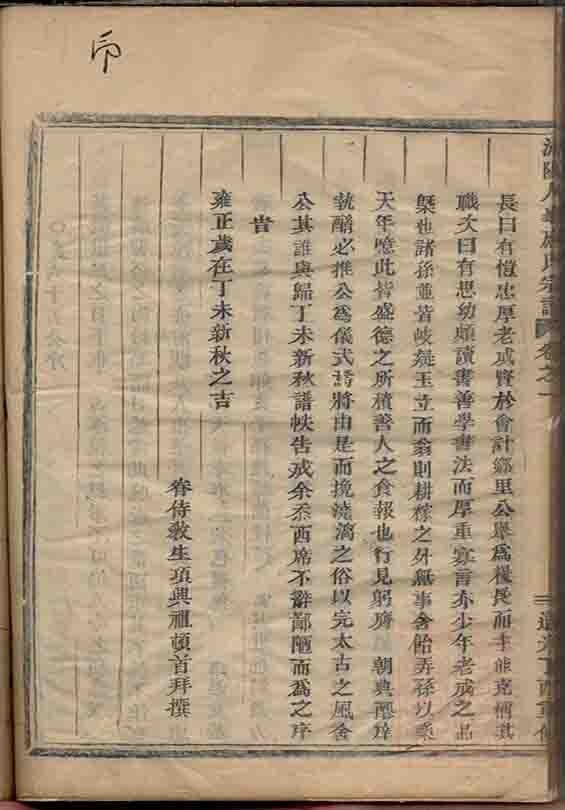 長曰有愷忠厚老成賢於會計鄉里公舉為糧長而才能克稱其
職次曰有思幼頗讀書善學書法而厚重寡言亦少年老成之品
槩也諸孫並皆岐嶷玉立而翁則耕稼之外無事含飴弄孫以樂
天年噫此皆盛德之所積善人之食報也行見躬膺 朝典
執醻必推公為儀式焉將由是而挽澆漓之俗以完太古之風舍
公其誰與歸丁未新秋譜帙告成余忝西席不辭鄙陋而為之序
旹
雍正歲在丁未新秋之吉
眷侍敎生項興祖頓首拜撰
氏宗譜 卷之一